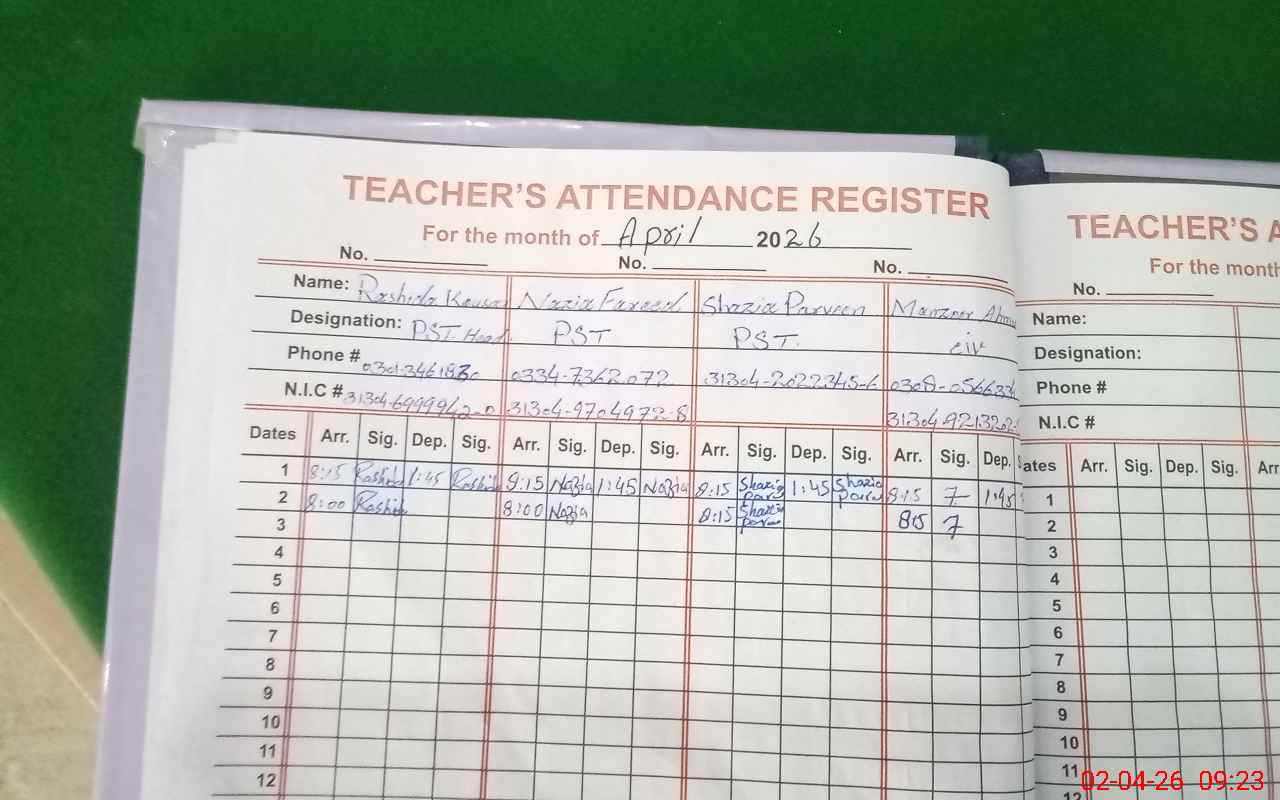 TEACHER'S ATTENDANCE REGISTER
For the month of April 2026
No. No. No.
Name: Rashida Kousar Nazia Fareed Shazia Parveen Manzoor Ahm
Designation: PST. Head PST PST.
Phone # 0334-7362072 31304-2022345-6
N.I.C # 31304-6999942-0 31304-9704972-8
Dates Arr. Sig. Dep. Sig. Arr. Sig. Dep. Sig. Arr. Sig. Dep. Sig. Arr. Sig. Dep.
1 8:15 Rashida 1:45 Rashida 8:15 Nazia 1:45 Nazia 8:15 Shazia parv 1:45 Shazia parv 8:15 1:45
2 8:00 Rashida 8:00 Nazia 8:15 Shazia 815
3
4
5
6
7
8
9
10
11
12
TEACHER'S A
For the month
No.
Name:
Designation:
Phone #
N.I.C #
ates Arr. Sig. Dep. Sig. Arr
1
2
3
4
5
6
7
8
9
10
11
12
02-04-26 09:23